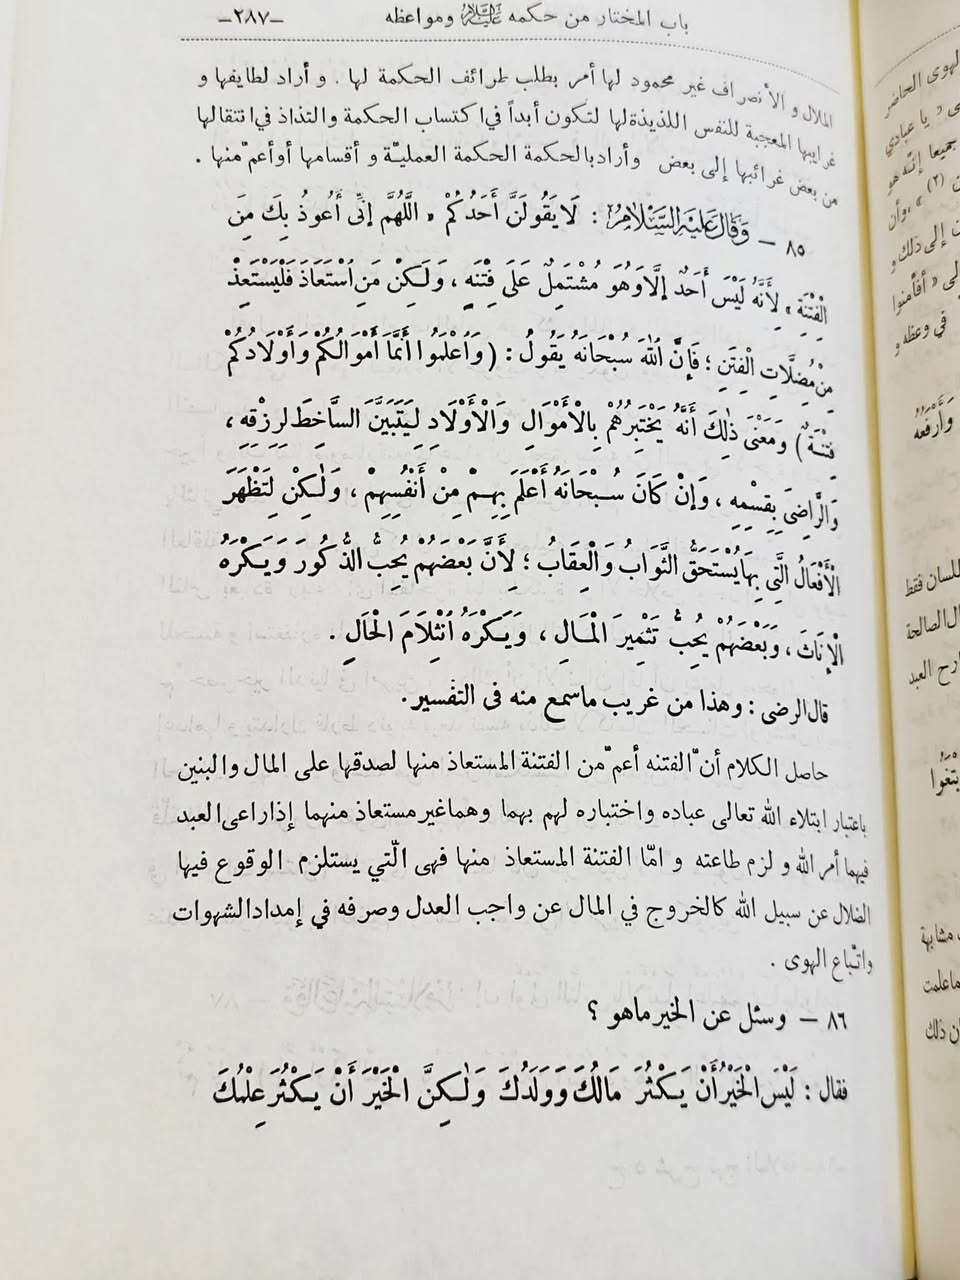 باب المختار من حكمه عليه السلام ومواعظه -٢٨٧-
الملال و الأنصراف غير محمود لها أمر بطلب طرائف الحكمة لها . و أراد لطايفها و
غرايبها المعجبة للنفس اللذيذة لها لتكون أبداً في اكتساب الحكمة والتذاذ في انتقالها
من بعض غرائبها إلى بعض وأراد بالحكمة الحكمة العمليّة و أقسامها أو أعمّ منها .
٨٥ – وَقَالَ عَلَيْهِ السَّلَامُ : لَا يَقُولَنَّ أَحَدُكُمْ « اللَّهُمَّ إِنِّى أَعُوذُ بِكَ مِنَ
الْفِتْنَةِ » لِأَنَّهُ لَيْسَ أَحَدٌ إِلَّا وَهُوَ مُشْتَمِلٌ عَلَى فِتْنَةٍ ، وَلَكِنْ مَنِ اسْتَعَاذَ فَلْيَسْتَعِذْ
مِنْ مُضِلَّاتِ الْفِتَنِ ؛ فَإِنَّ اللهَ سُبْحَانَهُ يَقُولُ : ( وَاعْلَمُوا أَنَّمَا أَمْوَالُكُمْ وَأَوْلَادُكُمْ
فِتْنَةٌ ) وَمَعْنَى ذٰلِكَ أَنَّهُ يَخْتَبِرُهُمْ بِالْأَمْوَالِ وَالْأَوْلَادِ لِيَتَبَيَّنَ السَّاخِطَ لِرِزْقِهِ ،
وَالرَّاضِىَ بِقِسْمِهِ ، وَإِنْ كَانَ سُبْحَانَهُ أَعْلَمَ بِهِمْ مِنْ أَنْفُسِهِمْ ، وَلٰكِنْ لِتَظْهَرَ
الْأَفْعَالُ الَّتِى بِهَا يُسْتَحَقُّ الثَّوَابُ وَالْعِقَابُ ؛ لِأَنَّ بَعْضَهُمْ يُحِبُّ الذُّكُورَ وَيَكْرَهُ
الْإِنَاثَ ، وَبَعْضَهُمْ يُحِبُّ تَثْمِيرَ الْمَالِ ، وَيَكْرَهُ انْثِلَامَ الْحَالِ .
قال الرضى : وهذا من غريب ما سمع منه فى التفسير .
حاصل الكلام أنّ الفتنه أعمّ من الفتنة المستعاذ منها لصدقها على المال والبنين
باعتبار ابتلاء الله تعالى عباده واختباره لهم بهما وهما غير مستعاذ منهما إذا راعى العبد
فيهما أمر الله و لزم طاعته و امّا الفتنة المستعاذ منها فهى الّتي يستلزم الوقوع فيها
الضلال عن سبيل الله كالخروج في المال عن واجب العدل وصرفه في إمداد الشهوات
واتّباع الهوى .
٨٦ – وسئل عن الخير ما هو ؟
فقال : لَيْسَ الْخَيْرُ أَنْ يَكْثُرَ مَالُكَ وَوَلَدُكَ وَلٰكِنَّ الْخَيْرَ أَنْ يَكْثُرَ عِلْمُكَ